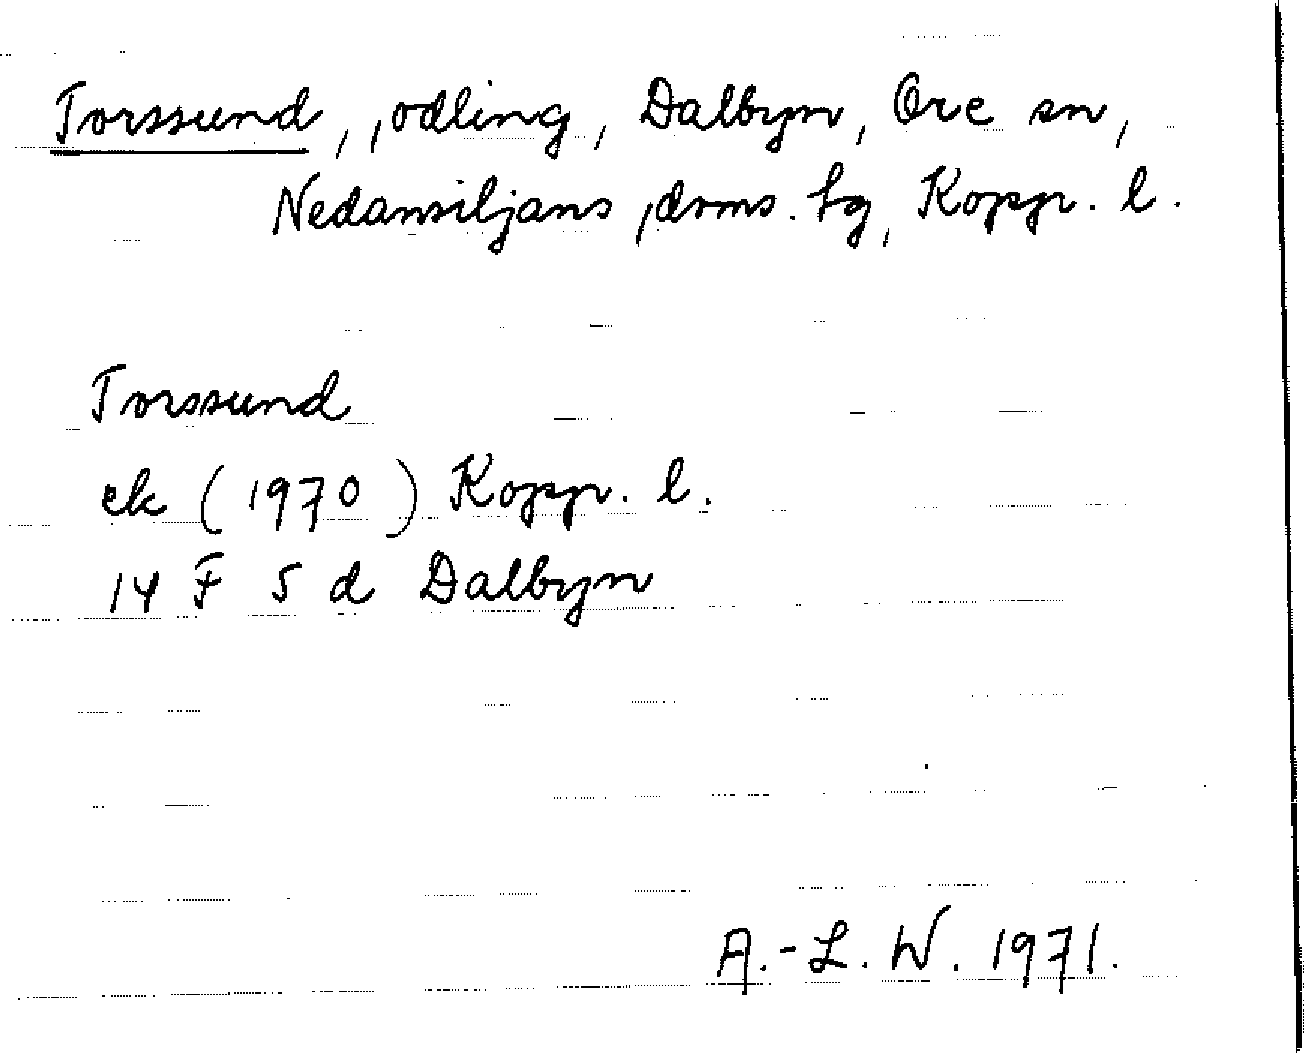 Torssund, , odling, Dalbyn, Ore sn,
Nedansiljans , doms. hg, Kopp. l.
Torssund
ek (1970) Kopp. l.
14 F 5 d Dalbyn
A.-L. W. 1971.